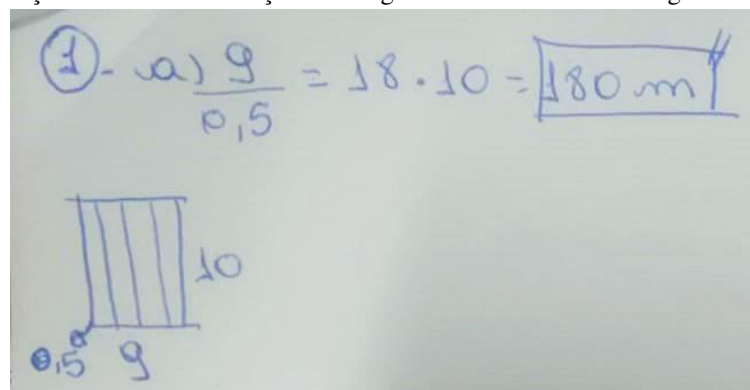 1- a) 9/0,5 = 18 · 10 = 180 m
10
0,5 9